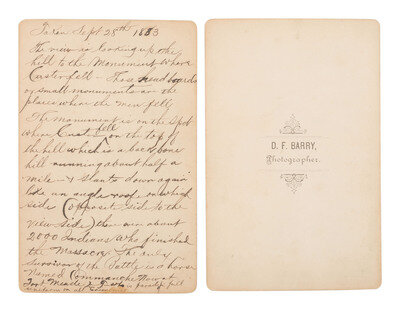 Taken Sept 25th 1883
The view is looking up the
hill to the Monument where
Custer fell - These head boards
or small monuments are the
places where the men fell,
The monument is on the spot
where Cust fell on the top of
the hill which is a back bone
hill running about half a
mile & slants down again
like an angle roof on which
side (opposite side to the
view side) there were about
2000 Indians who finished
the Massacre, The only
survivor of the Battle is a horse
Named Commanche Now at
Fort Meade
D. F. BARRY,
Photographer.